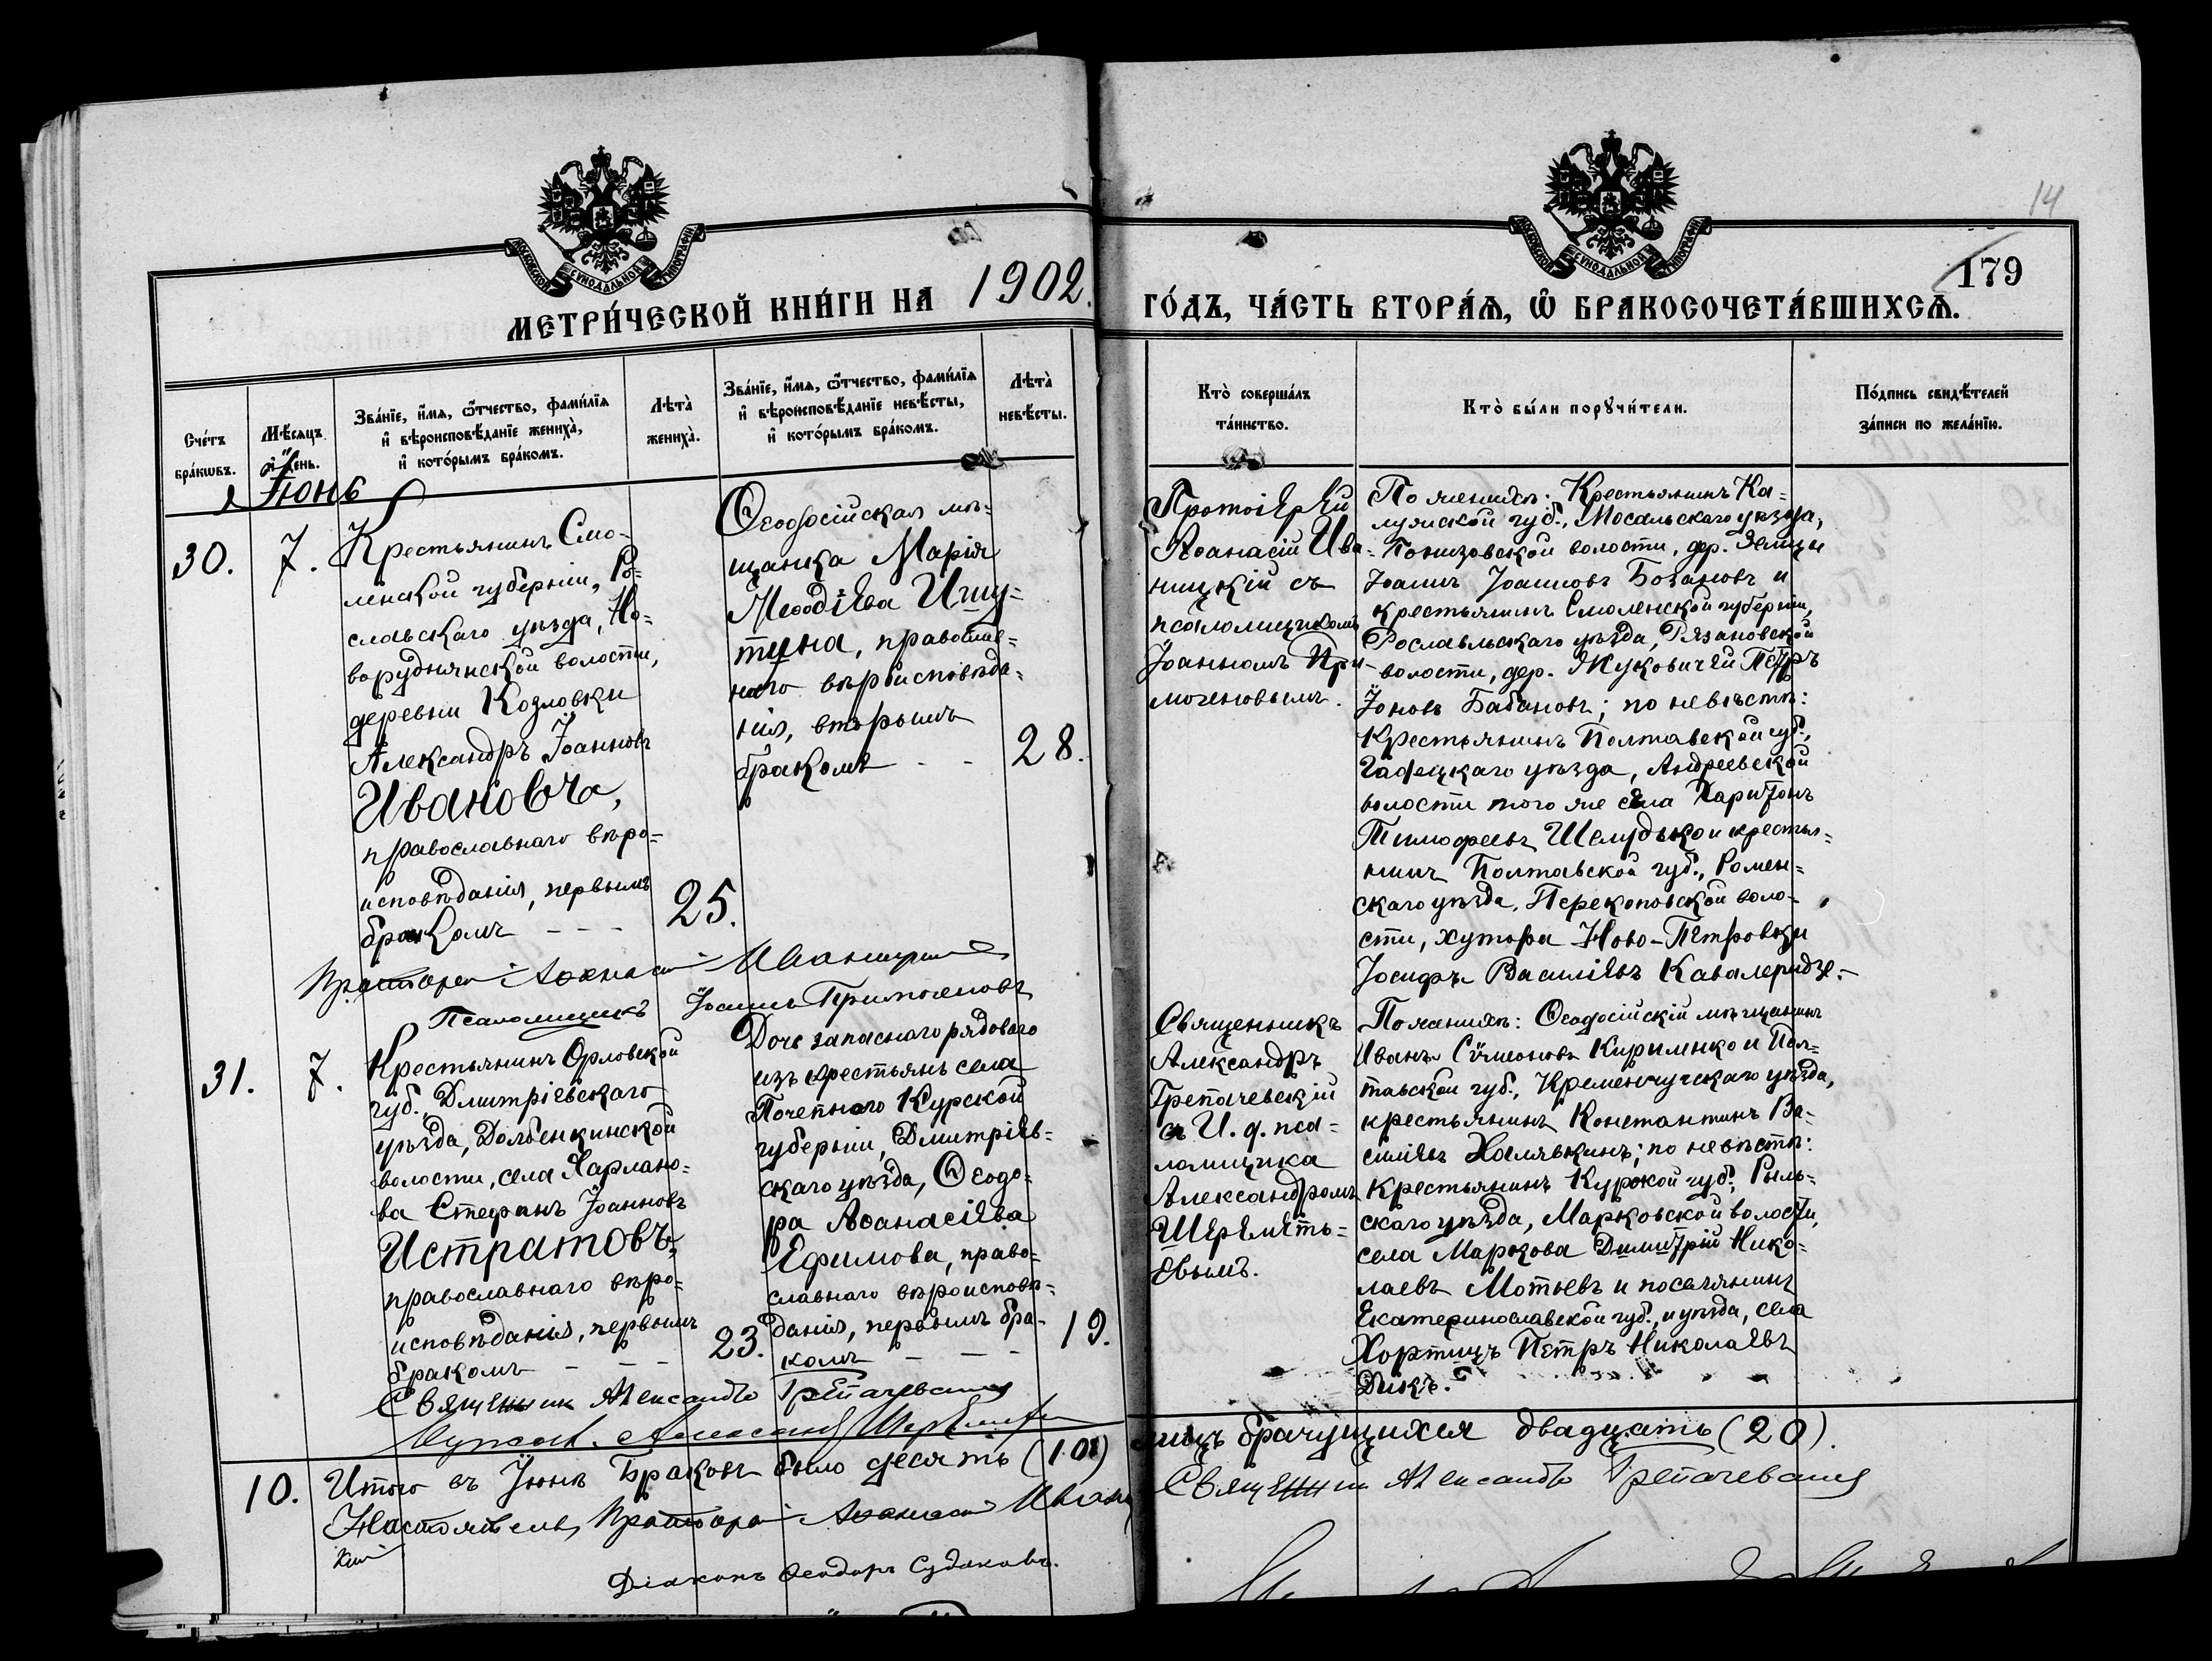 14
179
МОСКОВСКОЙ СѴНОДАЛЬНОЙ ТИПОГРАФІИ
МОСКОВСКОЙ СѴНОДАЛЬНОЙ ТИПОГРАФІИ
МЕТРИ́ЧЕСКОЙ КНИ́ГИ НА 1902
ГО́ДЪ, ЧА́СТЬ ВТОРА́Ѧ, Ѽ БРАКОСОЧЕТА́ВШИХСѦ.
Сче́тъ
бра́кѡвъ.
Мѣ́сяцъ
и день.
Зва́нїе, и҆́мѧ, ѻ҆́тчество, фами́лїѧ
и҆ вѣроисповѣ́данїе жениха̀,
и҆ кото́рымъ бра́комъ.
Лѣта̀
жениха̀.
Зва́нїе, и҆́мѧ, ѻ҆́тчество, фами́лїѧ
и҆ вѣроисповѣ́данїе невѣ́сты,
и҆ кото́рымъ бра́комъ.
Лѣта̀
невѣ́сты.
Кто̀ соверша́лъ
та́инство.
Кто̀ бы́ли порꙋчи́тели.
По́дпись свидѣ́телей
за́писи по жела́нїю.
Іюнь
30.
7.
Крестьянинъ Смо-
ленской губерніи, Ро-
славскаго уѣзда, Но-
воруднянской волости,
деревни Козловки
Александръ Іоанновъ
Ивановъ,
православнаго вѣро-
исповѣданія, первымъ
бракомъ - - -
25.
Ѳеодосійская мѣ-
щанка Марія
Меѳодіева Ишу-
тина, православ-
наго вѣроисповѣда-
нія, вторымъ
бракомъ - -
28.
Протоіерей
Аѳанасій Ива-
ницкій съ
псаломщикомъ
Іоанномъ При-
моченовымъ.
По женихѣ: Крестьянинъ Ка-
лужской губ., Мосальскаго уѣзда,
Понизовской волости, дер.
Іоаннъ Іоанновъ Базановъ и
крестьянинъ Смоленской губерніи,
Рославльскаго уѣзда, Рязановской
волости, дер. Жуковичей Петръ
Іоновъ Бабановъ; по невѣстѣ:
Крестьянинъ Полтавской губ.,
Гадецкаго уѣзда, Андреевской
волости того же села Харитонъ
Тимофеевъ Шелудько и крестья-
нинъ Полтавской губ., Ромен-
скаго уѣзда, Перекоповской воло-
сти, хутора Ново-Петровки
Іосифъ Василіевъ Кавалеридзе.-
Протоіерей Аѳанасій Иваницкій
Псаломщикъ Іоаннъ Примоченовъ
31.
7.
Крестьянинъ Орловской
губ., Дмитріевскаго
уѣзда, Долбенкинской
волости, села Харлано-
ва Стефанъ Іоанновъ
Истратовъ,
православнаго вѣро-
исповѣданія, первымъ
бракомъ - - -
23.
Дочь запаснаго рядоваго
изъ крестьянъ села
Почепнаго Курской
губерніи, Дмитріев-
скаго уѣзда, Ѳеодо-
ра Аѳанасіева
Ефимова, право-
славнаго вѣроисповѣ-
данія, первымъ бра-
комъ - - -
19.
Священникъ
Александръ
Трепачевскій
съ И. д. пса-
ломщика
Александромъ
Шереметь-
евымъ.
По женихѣ: Ѳеодосійскій мѣщанинъ
Иванъ Симеоновъ Кириленко и Пол-
тавской губ., Кременчугскаго уѣзда,
крестьянинъ Константинъ Ва-
силіевъ Халявкинъ; по невѣстѣ:
Крестьянинъ Курской губ., Рыль-
скаго уѣзда, Марковской волости,
села Маркова Димитрій Нико-
лаевъ Мотьевъ и поселянинъ
Екатеринославской губ., и уѣзда, села
Хортицъ Петръ Николаевъ
Дикъ.
Священник Александръ Трепачевскій
10.
Итого въ Іюнѣ браковъ было десять (10) лицъ брачущихся двадцать (20).
Настоятель, Протоіерей Аѳанасій Иваниц
кій
Священник Александръ Трепачевскій
Діаконъ Ѳеодоръ Судаковъ.